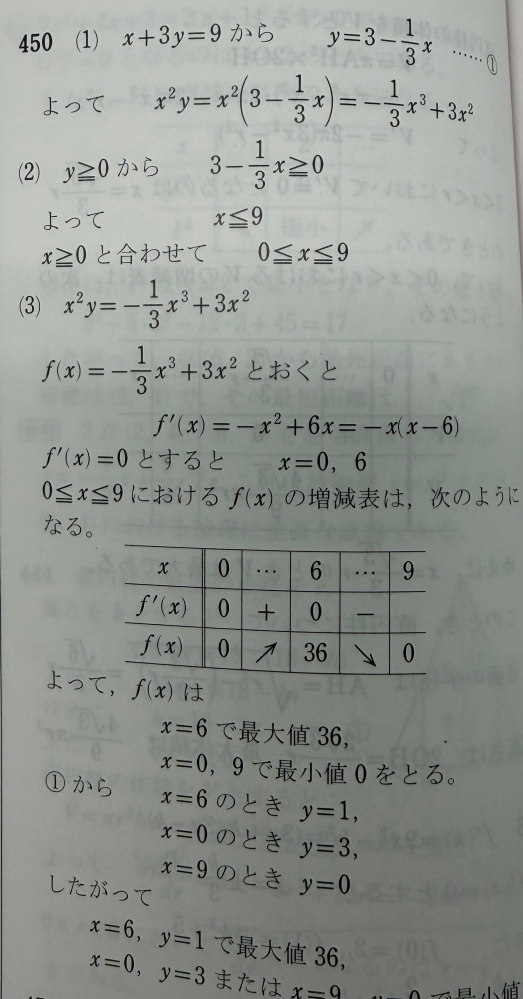 450 (1) x+3y=9 から y=3-1/3x ……①
よって x²y=x²(3-1/3x)=-1/3x³+3x²
(2) y≧0 から 3-1/3x≧0
よって x≦9
x≧0 と合わせて 0≦x≦9
(3) x²y=-1/3x³+3x²
f(x)=-1/3x³+3x² とおくと
f'(x)=-x²+6x=-x(x-6)
f'(x)=0 とすると x=0, 6
0≦x≦9 における f(x) の増減表は，次のように
なる。
x 0 … 6 … 9
f'(x) 0 + 0 -
f(x) 0 ↗ 36 ↘ 0
よって，f(x) は
x=6 で最大値 36,
x=0, 9 で最小値 0 をとる。
①から x=6 のとき y=1,
x=0 のとき y=3,
x=9 のとき y=0
したがって
x=6, y=1 で最大値 36,
x=0, y=3 または x=9, y=0 で最小値